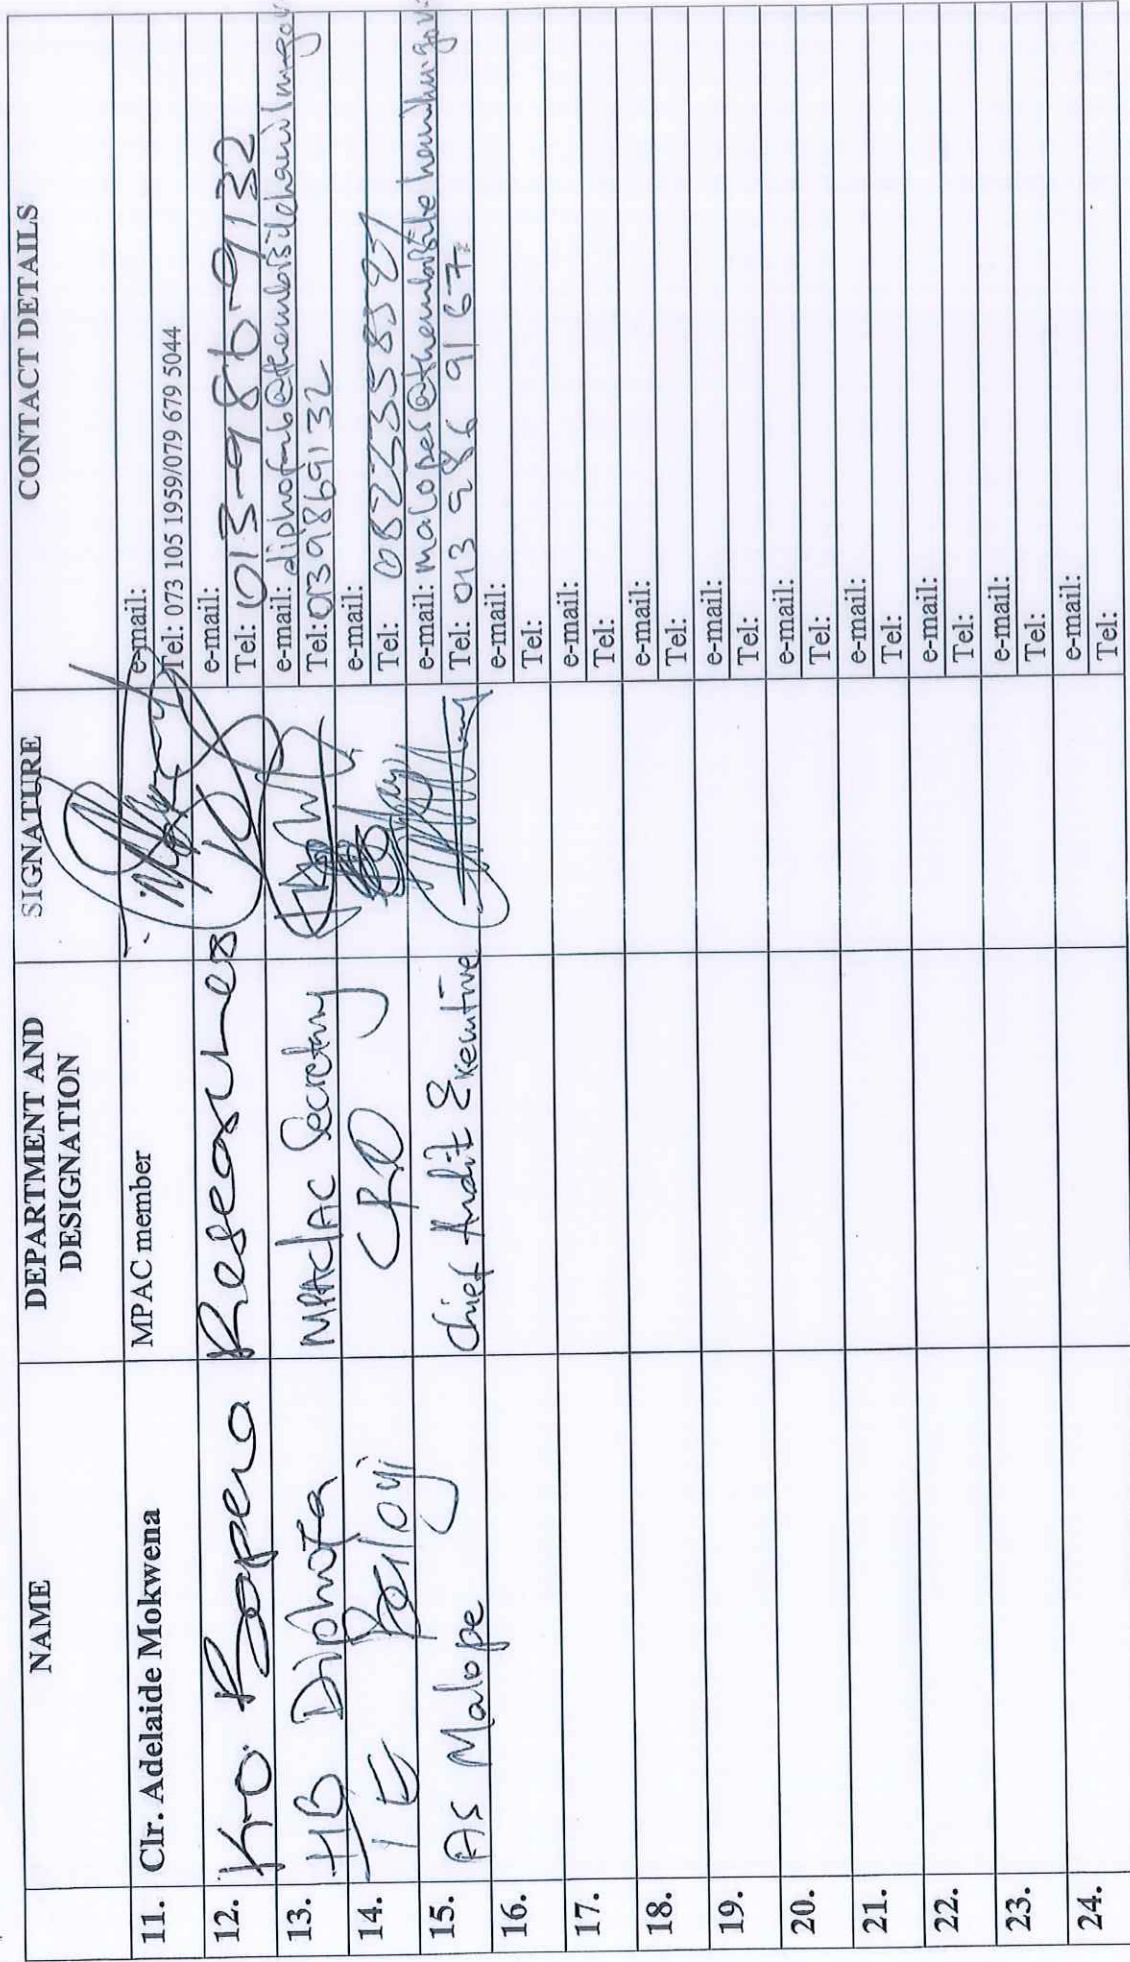 NAME
DEPARTMENT AND DESIGNATION
SIGNATURE
CONTACT DETAILS
11. Clr. Adelaide Mokwena
MPAC member
e-mail:
Tel: 073 105 1959/079 679 5044
12. K.O Bapela
Researcher
e-mail:
Tel: 013-986-9132
13. HB Diphofa
MPAC/AC Secretary
e-mail:
Tel: 0139869132
14.
CRO
e-mail:
Tel:
15. AS Malope
Chief Audit Executive
e-mail:
Tel: 013 986 9167
16.
e-mail:
Tel:
17.
e-mail:
Tel:
18.
e-mail:
Tel:
19.
e-mail:
Tel:
20.
e-mail:
Tel:
21.
e-mail:
Tel:
22.
e-mail:
Tel:
23.
e-mail:
Tel:
24.
e-mail:
Tel: